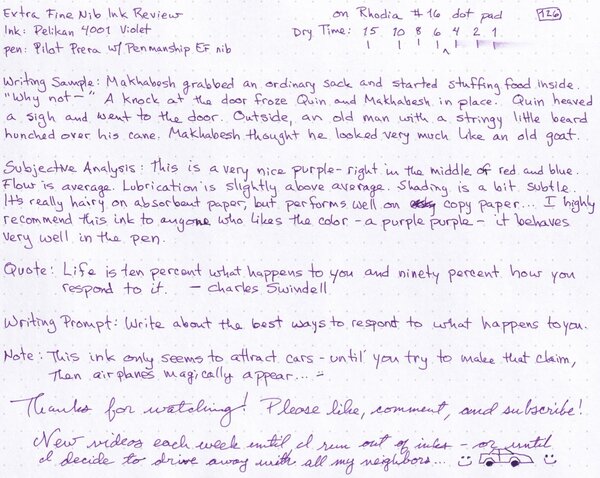 Extra Fine Nib Ink Review on Rhodia #16 dot pad 126
Ink: Pelikan 4001 Violet Dry Time: 15 10 8 6 4 2 1
pen: Pilot Prera w/ Penmanship EF nib
Writing Sample: Makhabesh grabbed an ordinary sack and started stuffing food inside.
"Why not—" A knock at the door froze Quin and Makhabesh in place. Quin heaved
a sigh and went to the door. Outside, an old man with a stringy little beard
hunched over his cane. Makhabesh thought he looked very much like an old goat.
Subjective Analysis: This is a very nice purple - right in the middle of red and blue.
Flow is average. Lubrication is slightly above average. Shading is a bit subtle.
It's really hairy on absorbent paper, but performs well on copy paper... I highly
recommend this ink to anyone who likes the color - a purple purple - it behaves
very well in the pen.
Quote: Life is ten percent what happens to you and ninety percent how you
respond to it. — Charles Swindell
Writing Prompt: Write about the best ways to respond to what happens to you.
Note: This ink only seems to attract cars - until you try to make that claim,
then airplanes magically appear...
Thanks for watching! Please like, comment, and subscribe!
New videos each week until I run out of inks - or until
I decide to drive away with all my neighbors...